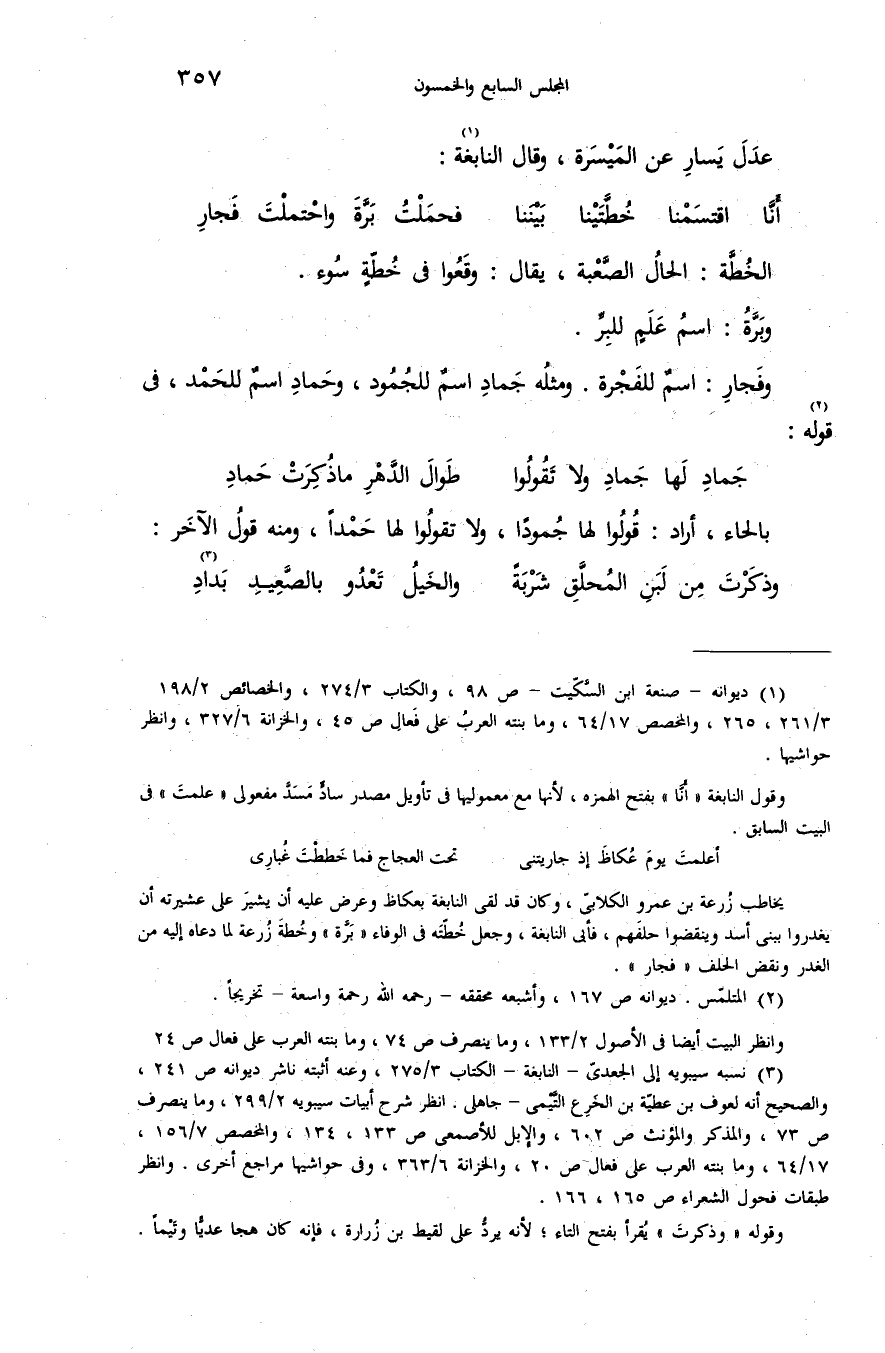 المجلس السابع والخمسون ٣٥٧
عدَلَ يَسارِ عن المَيْسَرة ، وقال النابغة (١) :
أَنَّا اقتسَمْنا خُطَّتَيْنا بَيْنَنا فحمَلْتُ بَرَّةَ واحْتملْتَ فَجارِ
الخُطَّة : الحالُ الصَّعْبة ، يقال : وقَعُوا فى خُطّةٍ سُوء .
وبَرَّةُ : اسمُ عَلَمٍ للبِرِّ .
وفَجارِ : اسمٌ للفَجْرة . ومثلُه جَمادِ اسمٌ للجُمُود ، وحَمادِ اسمٌ للحَمْد ، فى
قوله (٢) :
جَمادِ لَها جَمادِ ولا تَقُولُوا طَوالَ الدَّهْرِ ماذُكِرَتْ حَمادِ
بالحاء ، أراد : قُولُوا لها جُمودًا ، ولا تقولُوا لها حَمْداً ، ومنه قولُ الآخَر :
وذكَرْتَ مِن لَبَنِ المُحلَّقِ شَرْبَةً والخَيلُ تَعْدُو بالصَّعِيدِ بَدادِ (٣)
(١) ديوانه – صنعة ابن السكّيت – ص ٩٨ ، والكتاب ٢٧٤/٣ ، والخصائص ١٩٨/٢
٢٦١/٣ ، ٢٦٥ ، والمخصص ٦٤/١٧ ، وما بنته العربُ على فَعالِ ص ٤٥ ، والخزانة ٣٢٧/٦ ، وانظر
حواشيها .
وقول النابغة « أنَّا » بفتح الهمزه ، لأنها مع معموليها فى تأويل مصدر سادٍّ مَسَدَّ مفعولى « علمتَ » فى
البيت السابق .
أعلمتَ يومَ عُكاظَ إذ جاريتنى تحت العجاج فما خَططْتَ غُبارِى
يخاطب زُرعة بن عمرو الكلابىّ ، وكان قد لقى النابغة بعكاظ وعرض عليه أن يشيرَ على عشيرته أن
يغدروا ببنى أسد وينقضوا حلفَهم ، فأبى النابغة ، وجعل خُطتَّه فى الوفاء « بَرَّة » وخُطةَ زُرعة لما دعاه إليه من
الغدر ونقض الحلف « فجار » .
(٢) المتلمّس . ديوانه ص ١٦٧ ، وأشبعه محققه – رحمه الله رحمة واسعة – تخريجاً .
وانظر البيت أيضا فى الأصول ١٣٣/٢ ، وما ينصرف ص ٧٤ ، وما بنته العرب على فعال ص ٢٤
(٣) نسبه سيبويه إلى الجعدىّ – النابغة – الكتاب ٢٧٥/٣ ، وعنه أثبته ناشر ديوانه ص ٢٤١ ،
والصحيح أنه لعوف بن عطيّة بن الخَرِع التَّيْمى – جاهلى . انظر شرح أبيات سيبويه ٢٩٩/٢ ، وما ينصرف
ص ٧٣ ، والمذكر والمؤنث ص ٦٠٢ ، والإبل للأصمعى ص ١٣٣ ، ١٣٤ ، والمخصص ١٥٦/٧ ،
٦٤/١٧ ، وما بنته العرب على فعال ص ٢٠ ، والخزانة ٣٦٣/٦ ، وفى حواشيها مراجع أخرى . وانظر
طبقات فحول الشعراء ص ١٦٥ ، ١٦٦ .
وقوله « وذكرتَ » يُقرأ بفتح التاء ؛ لأنه يردُّ على لقيط بن زُرارة ، فإنه كان هجا عديًّا وتَيْماً .